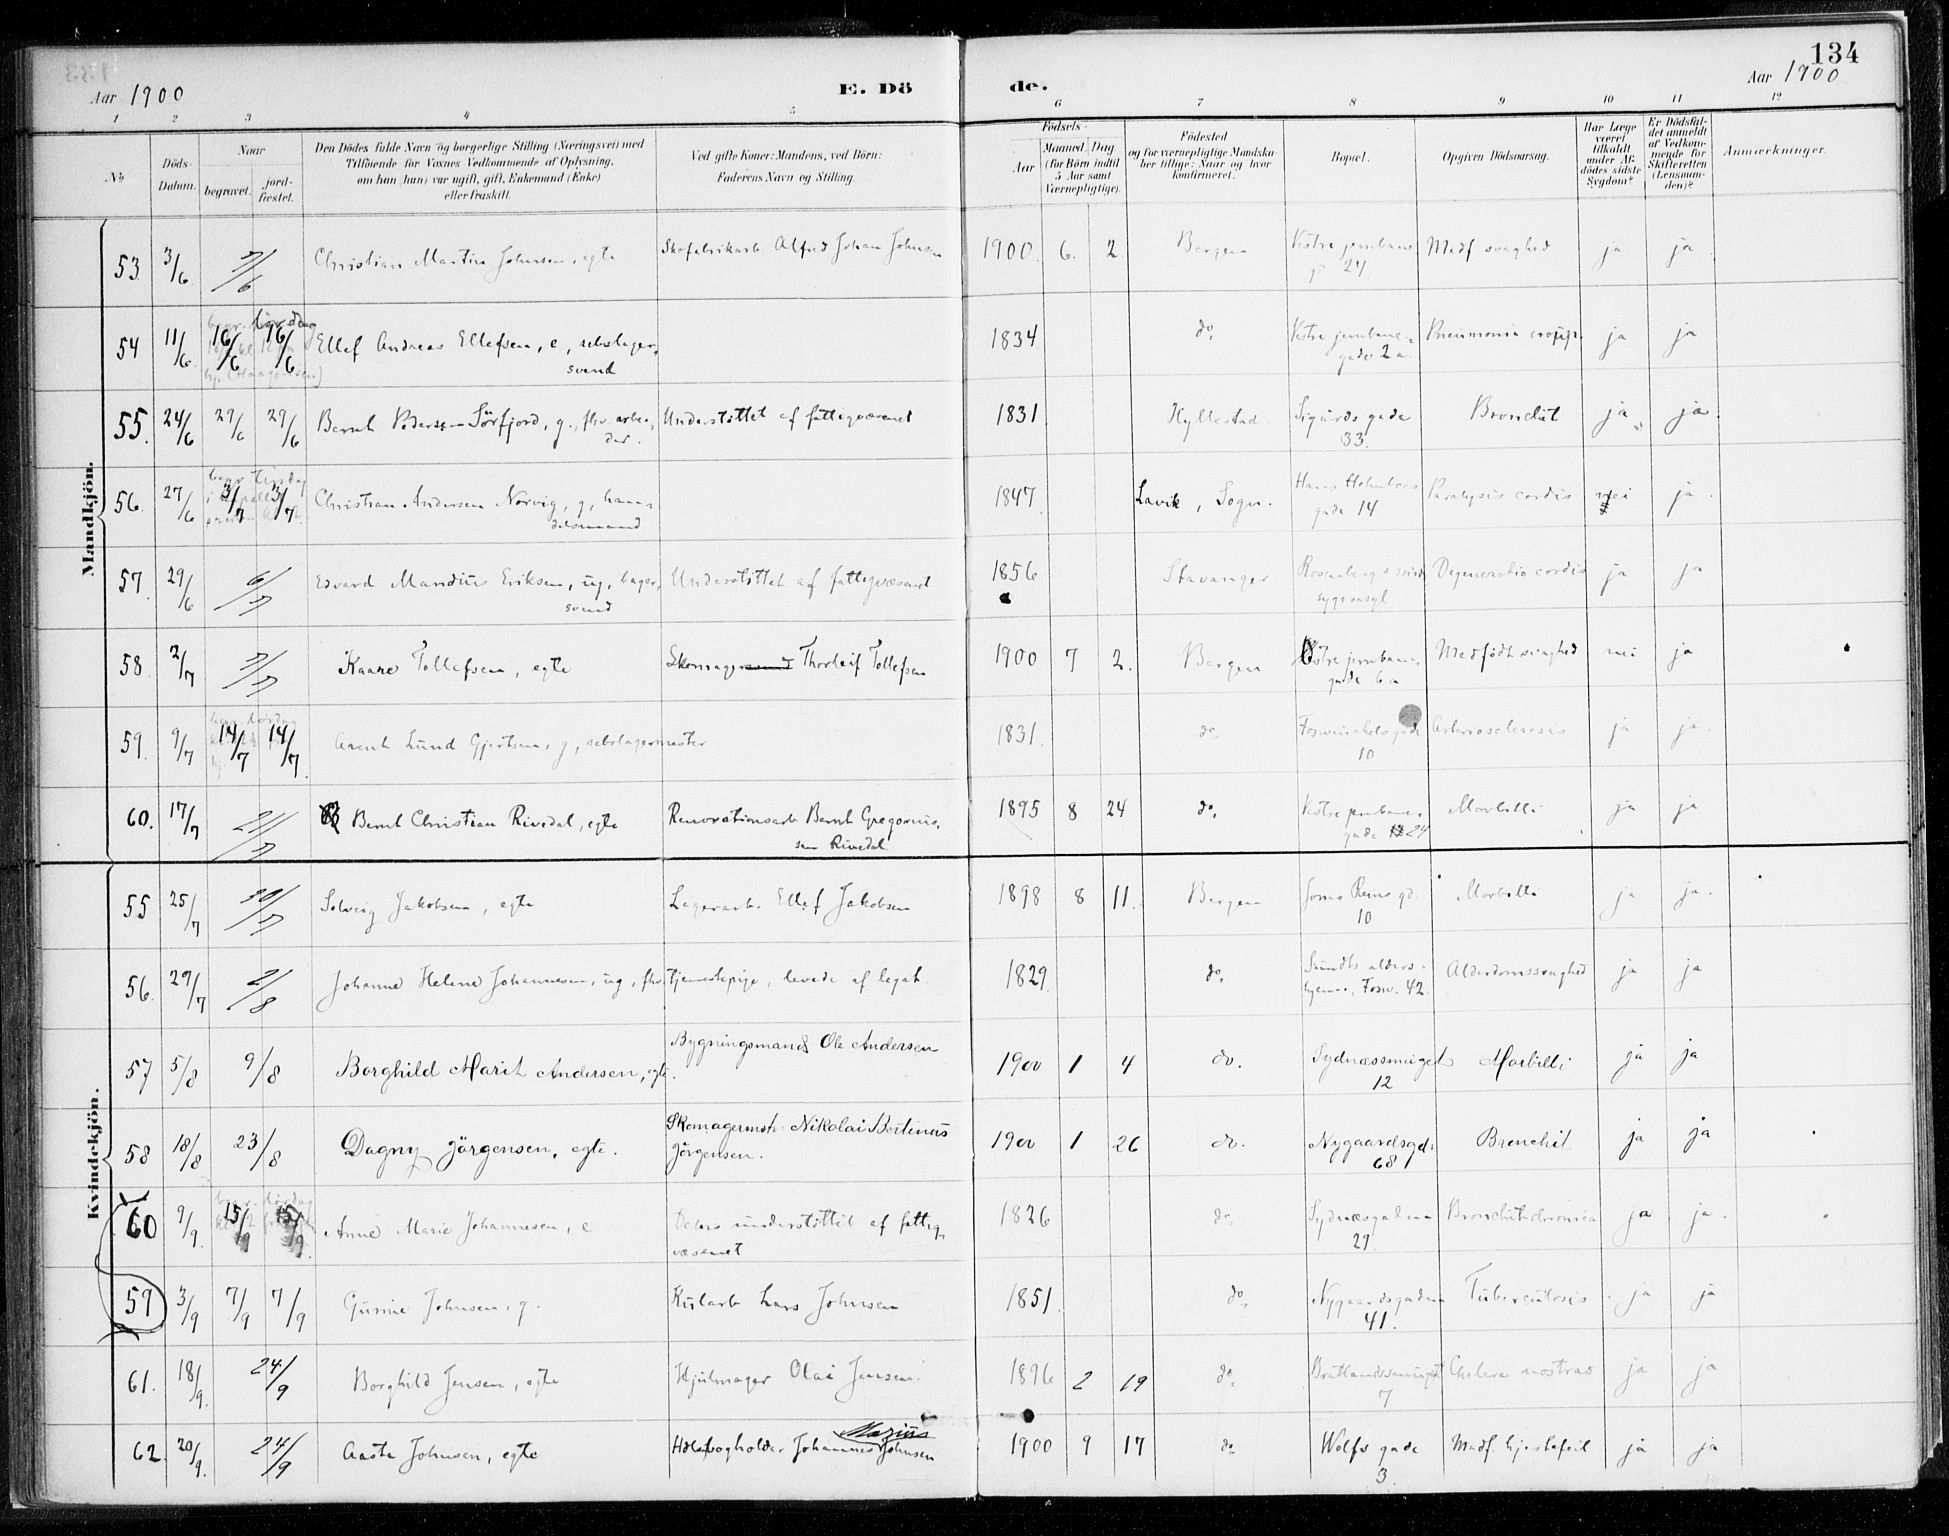 134
Aar 1900 E. Dö de. Aar 1900
1 2 3 4 5 6 7 8 9 10 11 12
No Döds-Datum. Naar begravet. jord-fæstet. Den Dödes fulde Navn og borgerlige Stilling (Næringsvei) med Tilföiende for Voxnes Vedkommende af Oplysning, om han (hun) var ugift, gift, Enkemand (Enke) eller fraskilt. Ved gifte Koner: Mandens, ved Börn: Faderens Navn og Stilling. Födsels- Aar Maaned. Dag. (for Börn indtil 5 Aar samt Værnepligtige). Födested og for værnepligtige Mandskaber tillige: Naar og hvor Konfirmeret. Bopæl. Opgiven Dödsaarsag. Har Læge været tilkaldt under Afdödes sidste Sygdom? Er Dödsfaldet anmeldt af Vedkommende for Skifteretten (Lensmanden)? Anmærkninger.
Mandkjön.
53 3/6 7/6 Christian Martin Johnsen, egte Skofabrikarb. Alfred Johan Johnsen 1900. 6. 2 Bergen Vestre jernbaneg. 24 Medf. svaghed ja ja
54 11/6 16/6 16/6 Ellef Andreas Ellefsen, e, rebslager-
svend 1834 do. Vestre jernbane-
gade 2a. Pneumonia croup. ja ja
55. 24/6 29/6 29/6 Bernh. Pedersen Sörfjord, g., fhv. arbei-
der. Understöttet af fattigvæsenet 1831 Hyllestad Sigurds gade
33. Bronchit ja ja
56. 27/6 3/7 3/7 Christian Andersen Norvig, g, han-
delsmand 1847 Lavik, Sogn. Hans Holmboes
gade 14 Paralysis cordis nei ja
57. 29/6 6/7 Edvard Mandius Eriksen, ug, bager-
svend Understöttet af fattigvæsenet 1856 Stavanger Rosenbergs sinds
sygeasyl Degeneratio cordis ja ja
58. 2/7 7/7 Kaare Tollefsen, egte Skomager Thorleif Tollefsen 1900 7 2. Bergen Vestre jernbane-
gade 6a Medfödt svaghed nei ja
59. 9/7 14/7 14/7 Arent Lund Gjertsen, g, rebslagermester 1831. do. Fosswinckelsgade
10 Arteriosclerosis ja ja
60. 17/7 21/7 Bernt Christian Rivedal, egte Renovationsarb. Bernt Gregorius-
sen Rivedal 1895 8 24 do. Vestre jernbane-
gade 24 Morbilli ja ja
Kvindekjön.
55 25/7 30/7 Solveig Jakobsen, egte Lagerarb. Ellef Jakobsen 1898 8 11. Bergen Jonas Reins gd.
10 Morbilli ja ja.
56. 29/7 2/8 Johanne Helene Johannesen, ug, fhv. tjenestepige, levede af legat. 1829. do. Sundts alders-
hjem, Fosw. 42. Alderdomssvaghed ja ja
57 5/8 9/8 Borghild Marit Andersen, egte. Bygningsmand Ole Andersen 1900 1 4 do. Sydnæssmuget
12 Morbilli ja ja
58 18/8 23/8 Dagny Jörgensen, egte. Skomagermstr. Nikolai Bertinus
Jörgensen. 1900 1 26 do. Nygaardsgd.
68 Bronchit ja ja
60 9/9. 15/9 15/9 Anne Marie Johannesen, e Delvis understöttet af fattig-
væsenet 1826 do. Sydnæsgaden
29 Bronchit. chronica ja ja.
59 3/9 7/9 7/9 Gurine Johnsen, g. Kularb. Lars Johnsen 1851. do. Nygaardsgaden
41. Tuberculosis ja ja
61. 18/9. 24/9 Borghild Jensen, egte Hjulmager Olai Jensen. 1896 2 19 do. Bratlandssmuget
7 Cholera nostras ja ja
62. 20/9. 24/9 Aasta Johnsen, egte Marius
Johannes Johnsen 1900 9 17 do Wolfs gade
3. Medf. hjertefeil ja ja